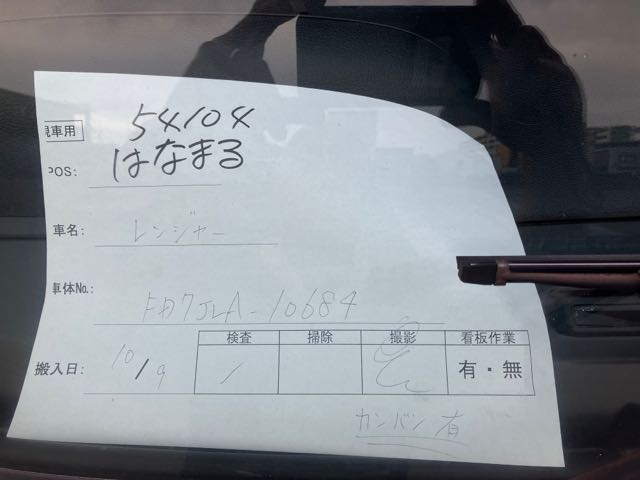 現車用
54104
はなまる
POS:
車名: レンジャー
車体No.: FD7JLA-10684
検査 掃除 撮影 看板作業
搬入日: 10/9 有・無
カンバン有